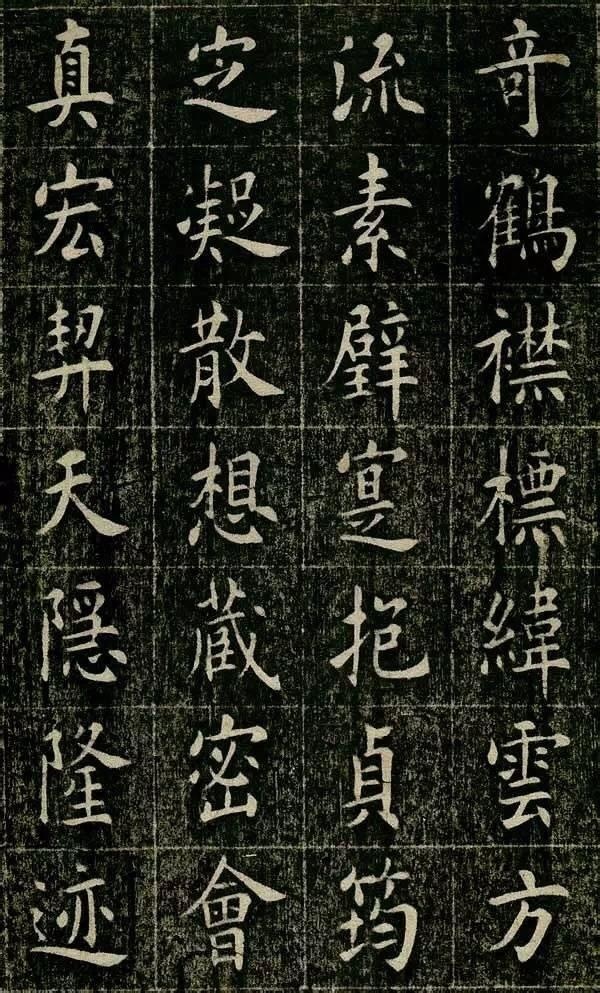 竒鶴襟標緯雲方
流素辟寔抱貞筠
定凝散想蔵密會
真宏契天隠隆迹